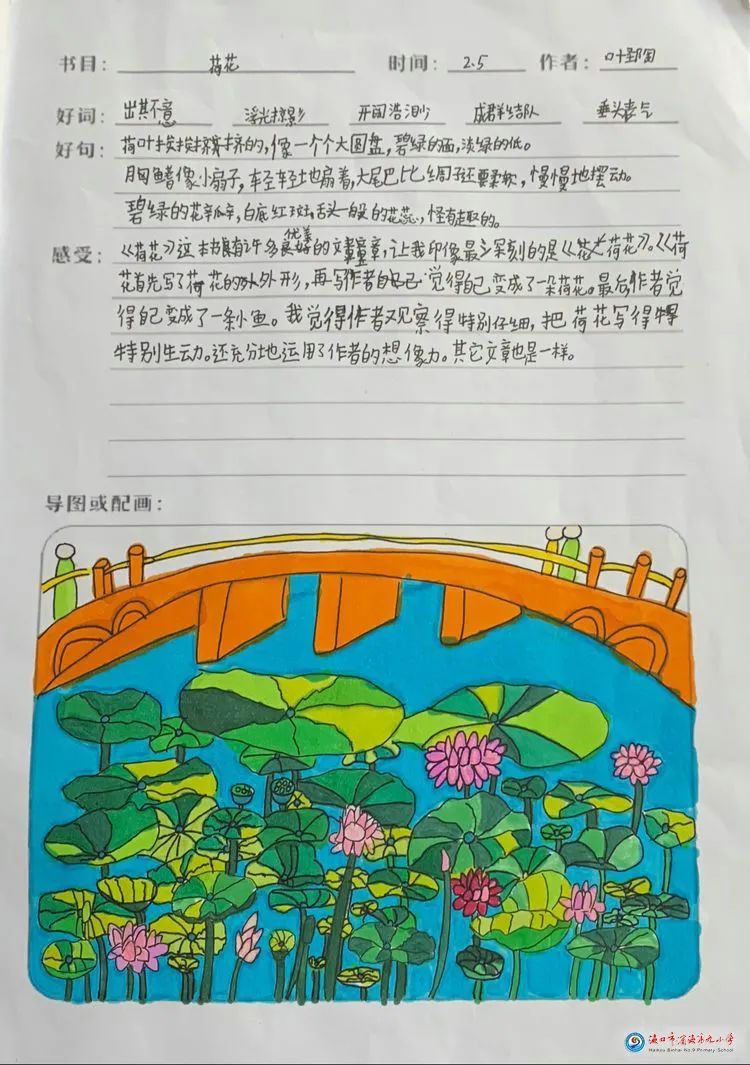 书目：荷花 时间：2.5 作者：叶郅陶
好词：出其不意 浮光掠影 开阔浩渺 成群结队 垂头丧气
好句：荷叶挨挨挤挤的，像一个个大圆盘，碧绿的面，淡绿的低。
胸鳍像小扇子，轻轻地扇着，大尾巴比绸子还要柔软，慢慢地摆动。
碧绿的花瓣，白底红斑，舌头一般的花蕊，怪有趣的。
感受：《荷花》这本书有许多优美的文章，让我印像最深刻的是《荷花》。《荷
花首先写了荷花的外形，再写作者自己觉得自己变成了一朵荷花。最后作者觉
得自己变成了一条小鱼。我觉得作者观察得特别仔细，把荷花写得
特别生动。还充分地运用了作者的想像力。其它文章也是一样。
导图或配画：
海口市滨海第九小学
Haikou Binhai No.9 Primary School